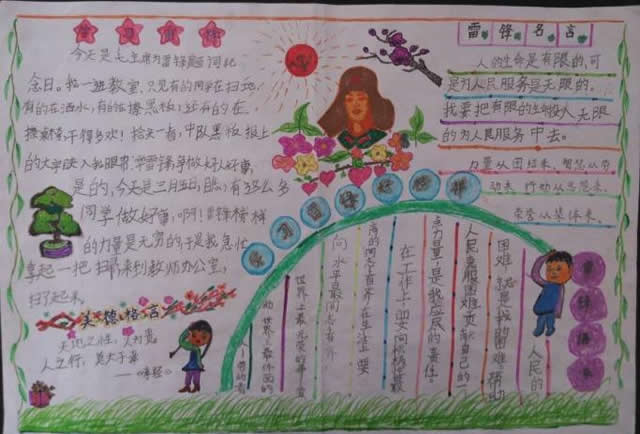 学习雷锋
今天是毛主席为雷锋题词纪
念日。我一进教室，只见有的同学在扫地，
有的在洒水，有的在擦黑板，还有的在
擦桌椅，干得多欢！抬头一看，中队黑板报上
的大字映入我眼帘：学雷锋争做好人好事，
是的，今天是三月五日，能有这么多
同学做好事，啊！雷锋榜样
的力量是无穷的，于是我急忙
拿起一把扫帚来到教师办公室，
扫了起来。
美德格言
天地之性，人为贵，
人之行，莫大于孝
——《孝经》
雷锋名言
人的生命是有限的，可
是为人民服务是无限的。
我要把有限的生命投入无限
的为人民服务中去。
力量从团结来，智慧从劳
动来，行动从思想来，
荣誉从集体来。
学习雷锋好榜样
人民的
困难，就是我的困难。帮助
人民克服困难贡献自己的一
点力量，是我应尽的责任。
在工作上，要向积极性最
高的同志看齐，在生活上，要
向水平最
世界上最光荣的事——劳
动，世界上最体面的
人——劳动者